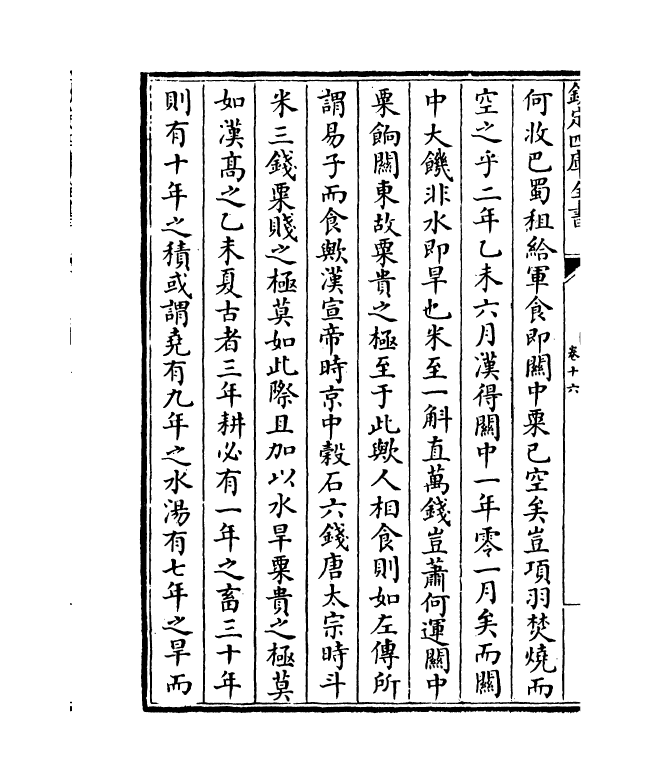 欽定四庫全書
卷十六
何收巴蜀租給軍食即關中粟已空矣豈項羽焚燒而
空之乎二年乙未六月漢得關中一年零一月矣而關
中大饑非水即旱也米至一斛直萬錢豈蕭何運關中
粟餉關東故粟貴之極至于此歟人相食則如左傳所
謂易子而食歟漢宣帝時京中穀石六錢唐太宗時斗
米三錢粟賤之極莫如此際且加以水旱粟貴之極莫
如漢高之乙未夏古者三年耕必有一年之畜三十年
則有十年之積或謂堯有九年之水湯有七年之旱而